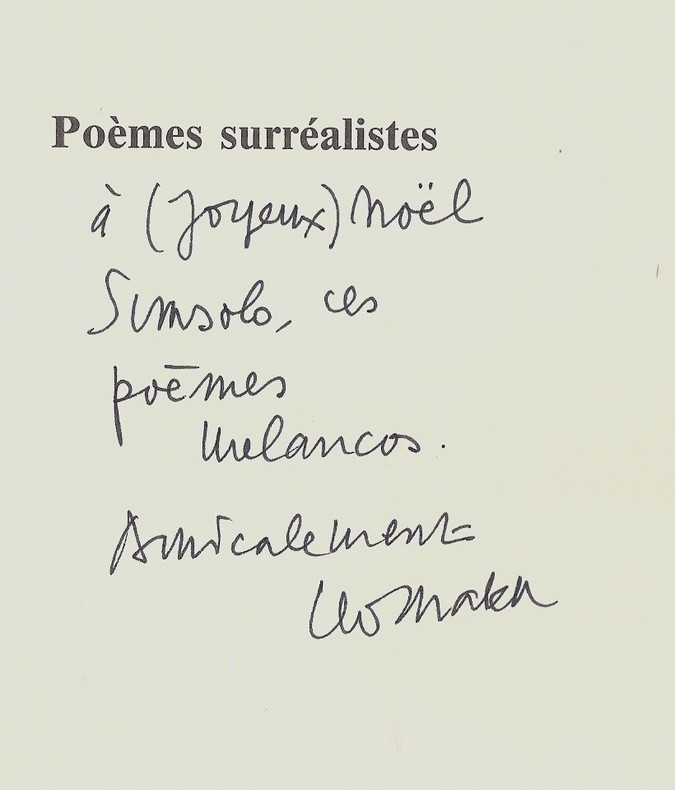 Poèmes surréalistes
à (Joyeux) Noël
Simsolo, ces
poēmes
melancos.
Amicalement
Leo Malet